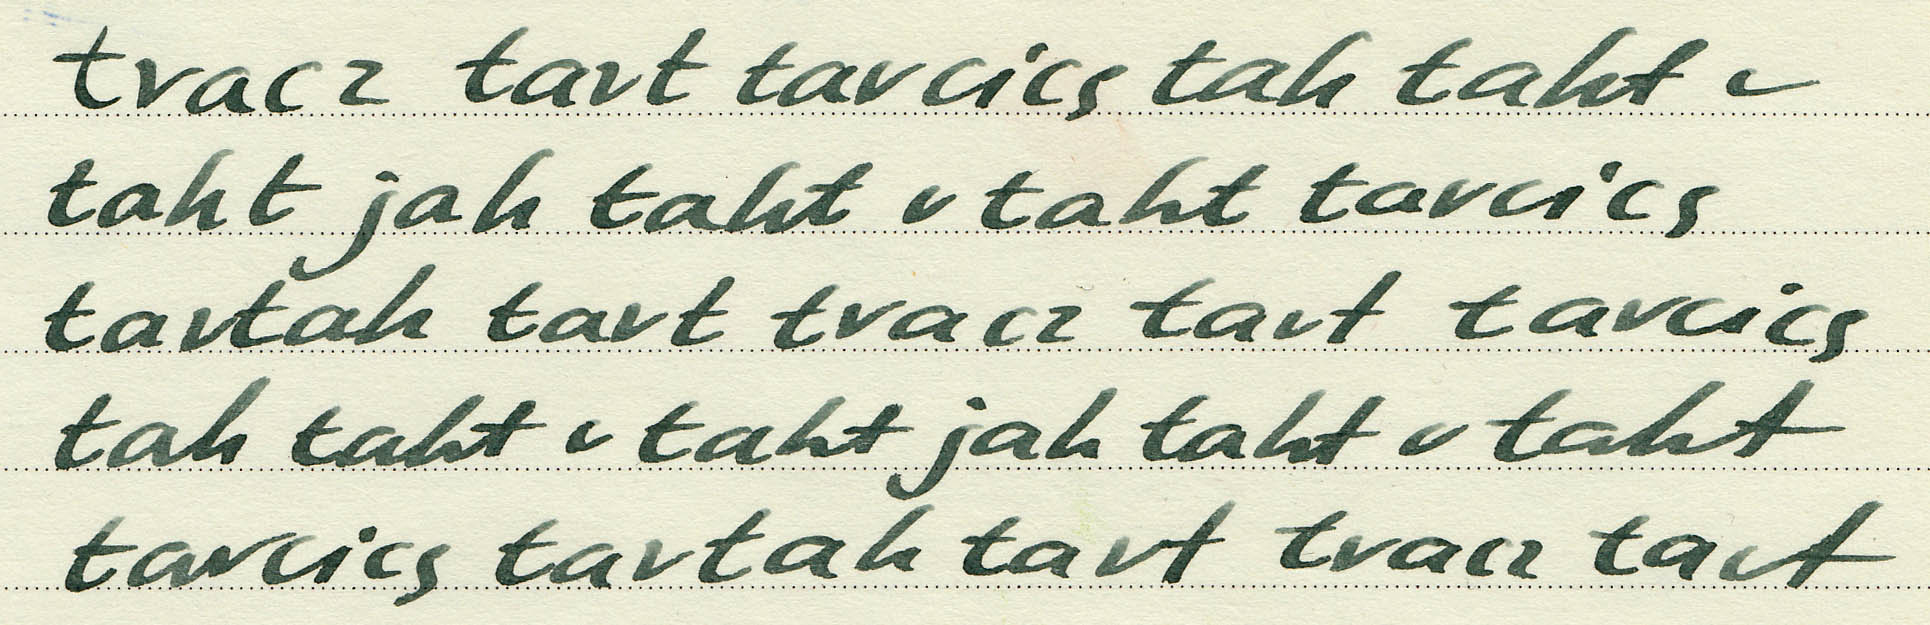 tracz tart tarcics tah taht r
taht jah taht r taht tarcics
tartah tart tracz tart tarcics
tah taht r taht jah taht r taht
tarcics tartah tart tracz tart